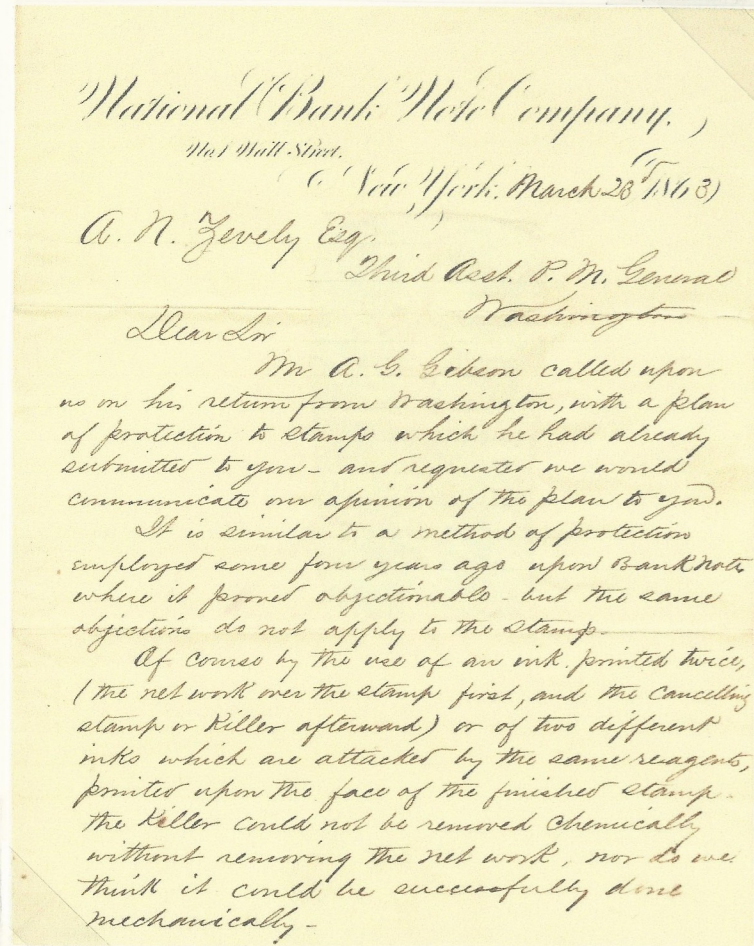 National Bank Note Company.
No 1 Wall Street.
New York. March 23d 1863
A. N. Zevely Esq.
Third Asst. P. M. General
Washington
Dear Sir
Mr A. G. Gibson called upon
us on his return from Washington, with a plan
of protection to stamps which he had already
submitted to you - and requested we would
communicate our opinion of the plan to you.
It is similar to a method of protection
employed some four years ago upon Bank Note
where it proved objectionable - but the same
objections do not apply to the stamp.
Of course by the use of an ink printed twice,
(the net work over the stamp first, and the cancelling
stamp or Killer afterward) or of two different
inks which are attacked by the same reagents,
printed upon the face of the finished stamp -
the Killer could not be removed chemically
without removing the net work, nor do we
think it could be successfully done
mechanically -